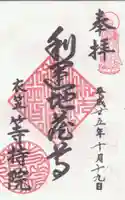 奉拝
平成廿五年十月十九日
利運地蔵尊
衣笠
等持院